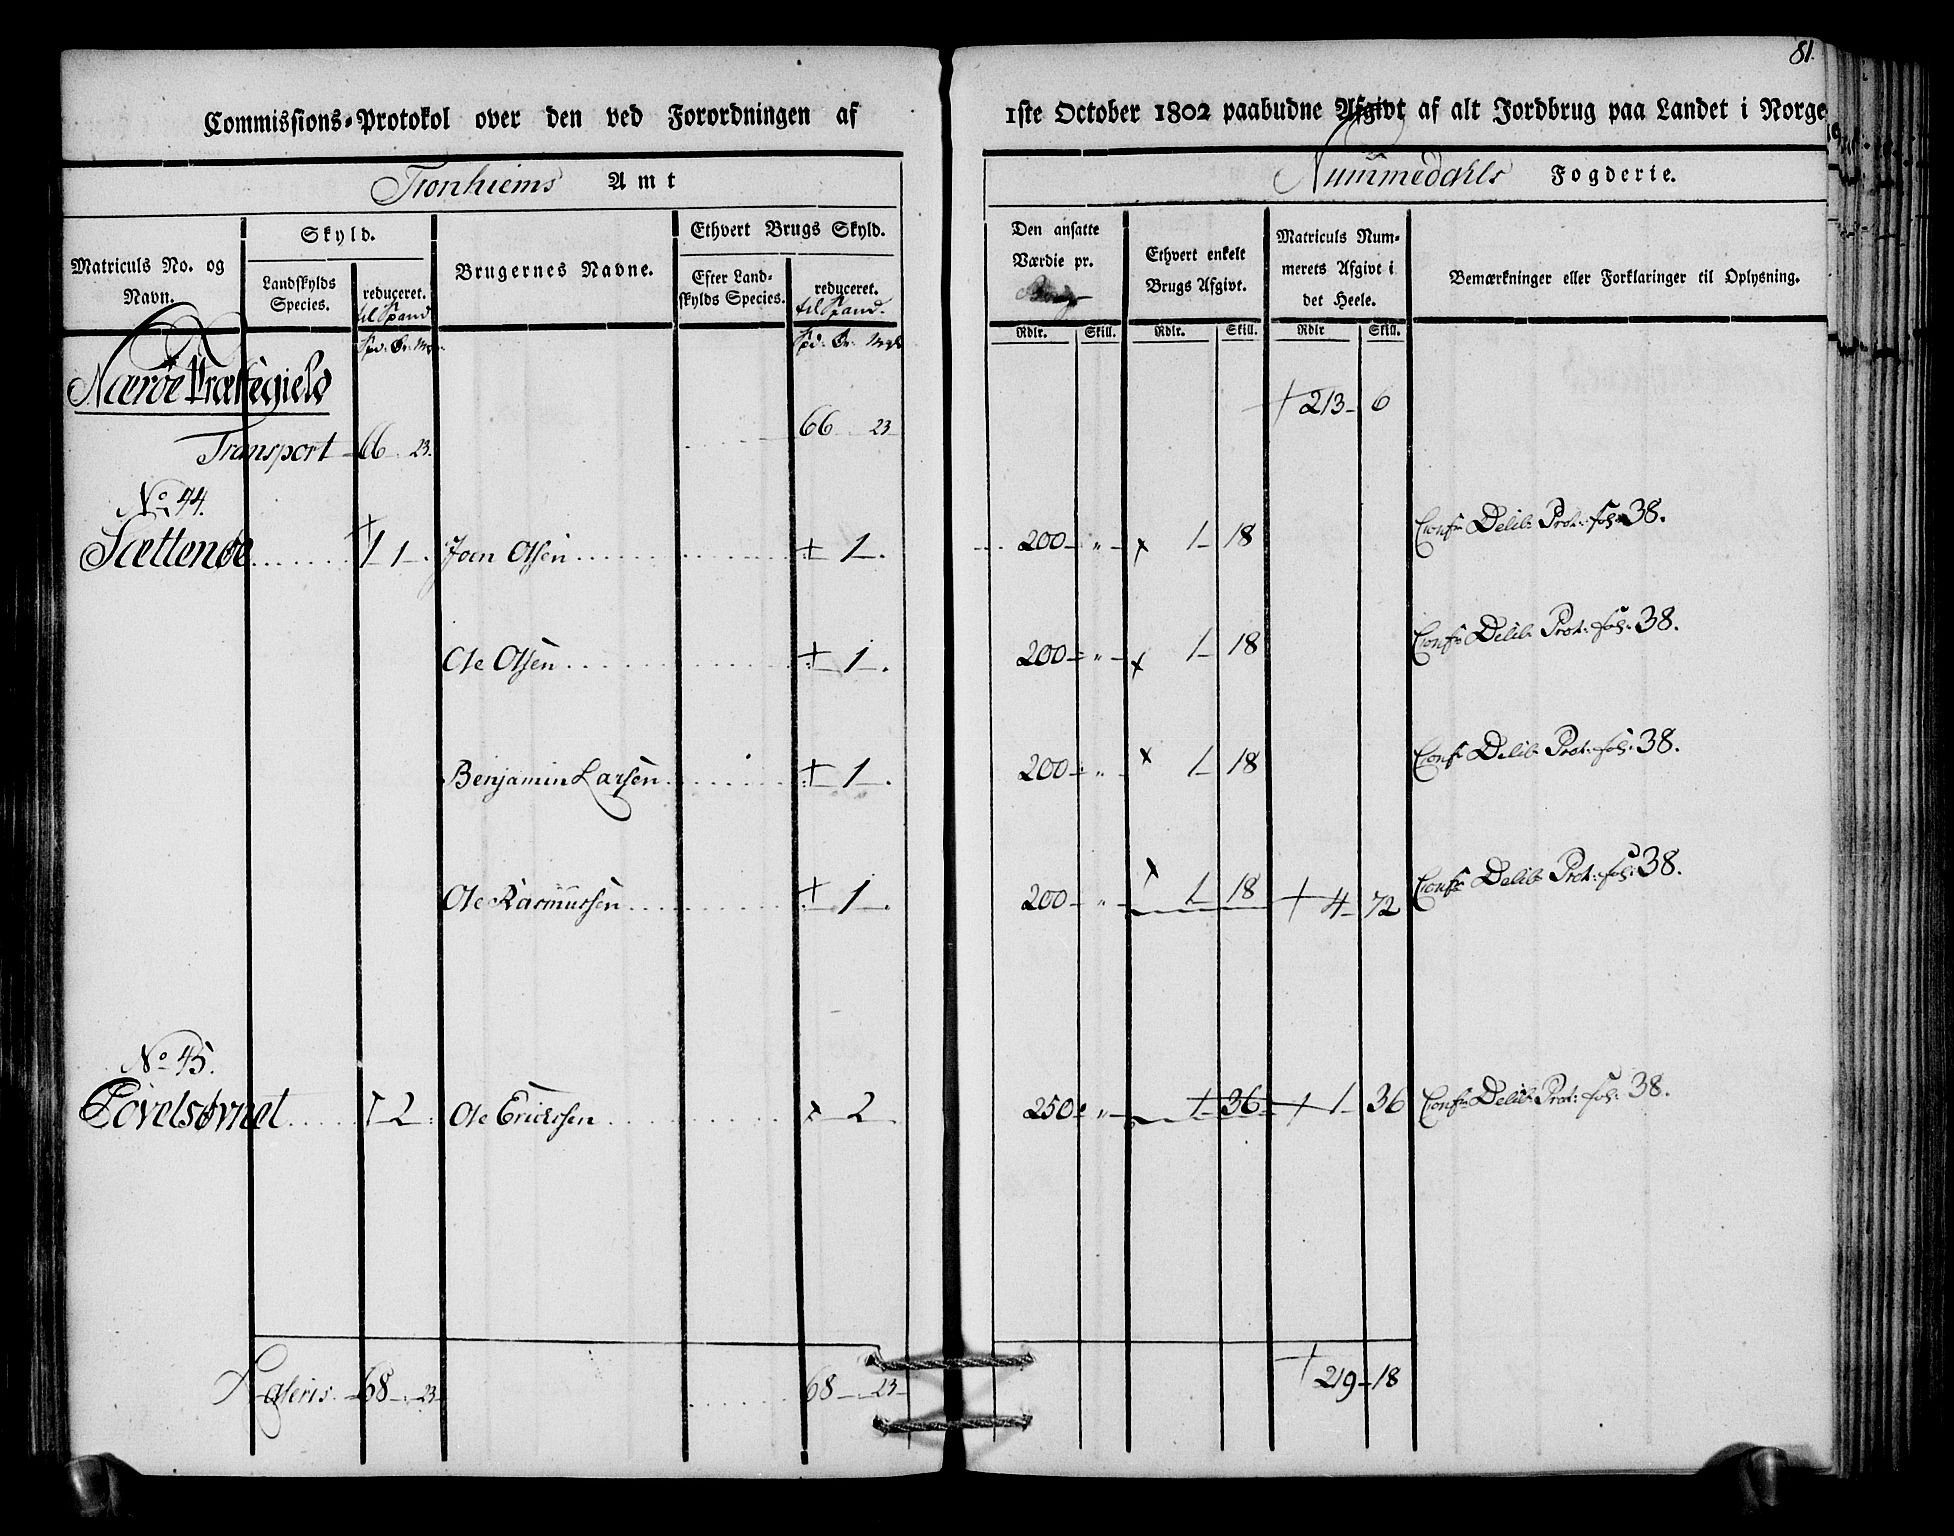 81.
Commissions-Protokol over den ved Forordningen af 1ste October 1802 paabudne Afgivt af alt Jordbrug paa Landet i Norge
Tronhiems Amt
Nummedahls Fogderie.
Matriculs No. og Navn.
Skyld.
Landskylds Species.
reduceret. til Spand
Brugernes Navne.
Ethvert Brugs Skyld.
Efter Landskylds Species.
reduceret. til Spand.
Den ansatte Værdie pr.
Ethvert enkelt Brugs Afgivt.
Matriculs Nummerets Afgivt i det Heele.
Bemærkninger eller Forklaringer til Oplysning.
Rdlr. Skill. Rdlr. Skill. Rdlr Skill.
Nærøe Præstegield
+ 213 - 6
Transport 66 - 23. 66 23
No 44.
Sættenøe 1 1 - Joen Olsen + 1 - 200 - " - x 1 - 18 Confr Delib: Prot: fol: 38.
Ole Olsen + 1 - 200 - " - x 1 - 18 Confr Delib: Prot: fol: 38.
Benjamin Larsen + 1 - 200 - " - x 1 - 18 Confr Delib: Prot: fol: 38.
Ole Rasmussen + 1 - 200 - " x 1 - 18 + 4 - 72 Confr Delib: Prot: fol: 38.
No 45.
- 2 - Ole Ericksen - 2 - 250 - " - 1 - 36 - 1 - 36 Confr Delib: Prot: fol: 38.
Lateris 68 - 23 68 - 23 + 219 - 18